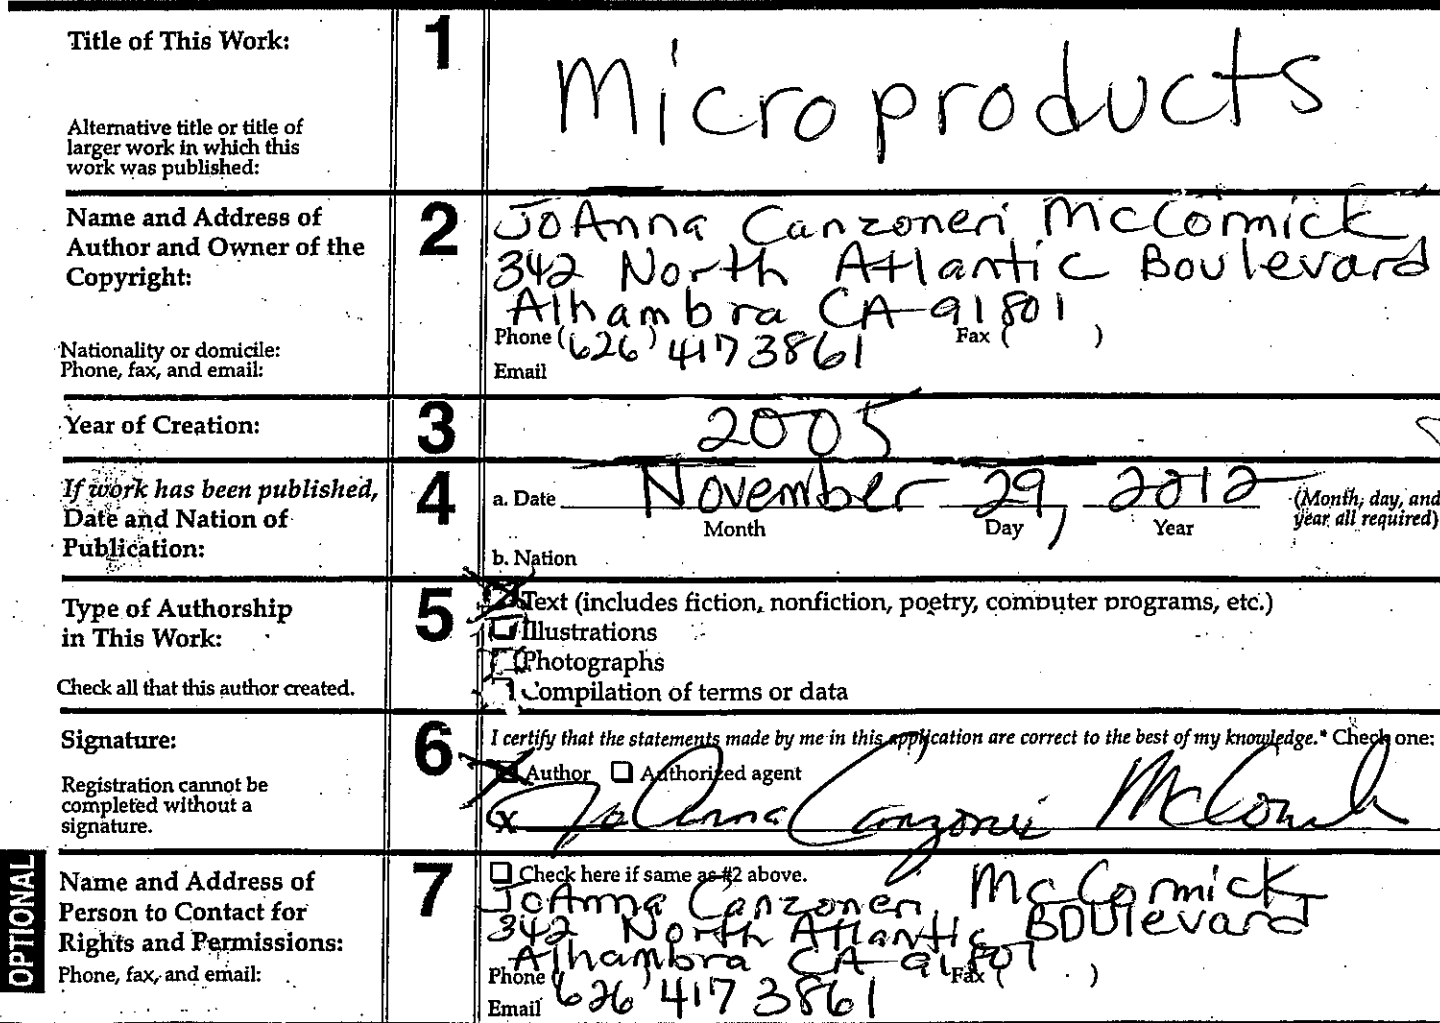 Title of This Work:
1
Microproducts
Alternative title or title of
larger work in which this
work was published:
Name and Address of
Author and Owner of the
Copyright:
2
JoAnna Canzoneri McCormick
342 North Atlantic Boulevard
Alhambra CA 91801
Nationality or domicile:
Phone, fax, and email:
Phone (626) 417 3861 Fax ( )
Email
Year of Creation:
3
2005
If work has been published,
Date and Nation of
Publication:
4
a. Date November 29, 2012 (Month, day, and
Month Day Year year all required)
b. Nation
Type of Authorship
in This Work:
Check all that this author created.
5
Text (includes fiction, nonfiction, poetry, computer programs, etc.)
Illustrations
Photographs
Compilation of terms or data
Signature:
Registration cannot be
completed without a
signature.
6
I certify that the statements made by me in this application are correct to the best of my knowledge.* Check one:
Author Authorized agent
X JoAnna Canzoneri McCormick
OPTIONAL
Name and Address of
Person to Contact for
Rights and Permissions:
Phone, fax, and email:
7
Check here if same as #2 above.
JoAnna Canzoneri McCormick
342 North Atlantic Boulevard
Alhambra CA 91801
Phone (626) 417 3861 Fax ( )
Email